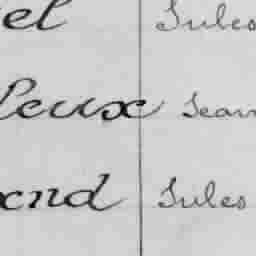 el Jules
leux Jean
end Jules